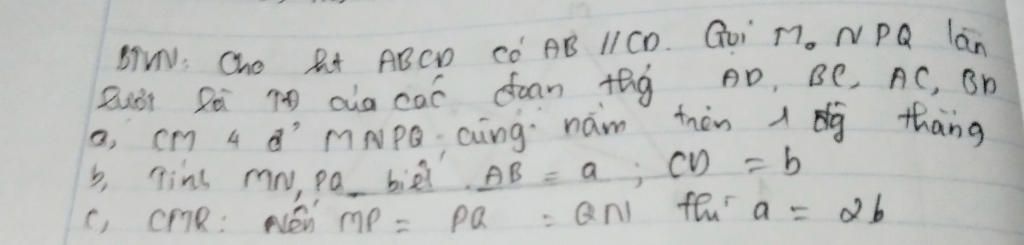 BTVN: Cho ht ABCD có AB // CD. Gọi M, N P Q lần
lượt là TĐ của các đoạn thg AD, BC, AC, BD
a, CM 4 đ' M N P Q cùng nằm trên 1 đg thẳng
b, Tính MN, PQ biết AB = a ; CD = b
c, CMR: Nếu MP = PQ = QN thì a = 2b